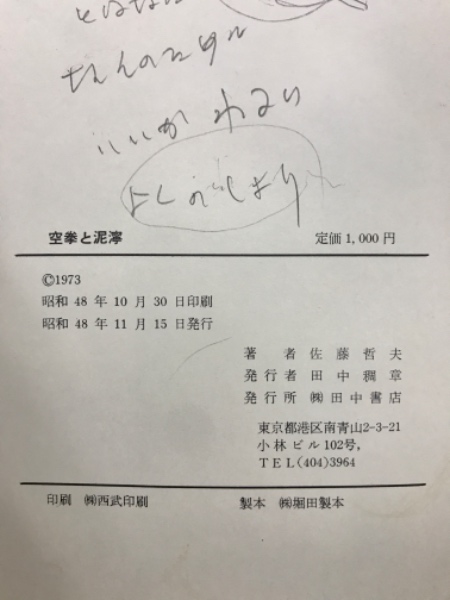 いいか わるい
空拳と泥濘
定価1,000円
©1973
昭和 48 年 10 月 30 日印刷
昭和 48 年 11 月 15 日発行
著 者 佐 藤 哲 夫
発 行 者 田 中 稠 章
発 行 所 ㈱ 田 中 書 店
東京都港区南青山2-3-21
小 林 ビ ル 102号,
T E L (404) 3964
印刷 ㈱西武印刷
製本 ㈱堀田製本